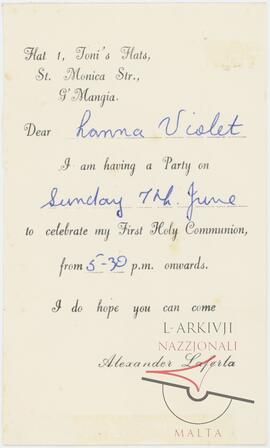 Flat 1, Toni's Flats,
St. Monica Str.,
G'Mangia.
Dear Lanna Violet
I am having a Party on
Sunday 7th. June
to celebrate my First Holy Communion,
from 5-30 p.m. onwards.
I do hope you can come
L-ARKIVJI
NAZZJONALI
Alexander Laferla
MALTA